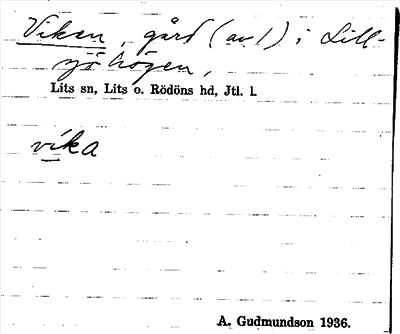 Viken, gård (av 1) i Lill-
sjöhögen,
Lits sn, Lits o. Rödöns hd, Jtl. l.
vika
A. Gudmundson 1936.